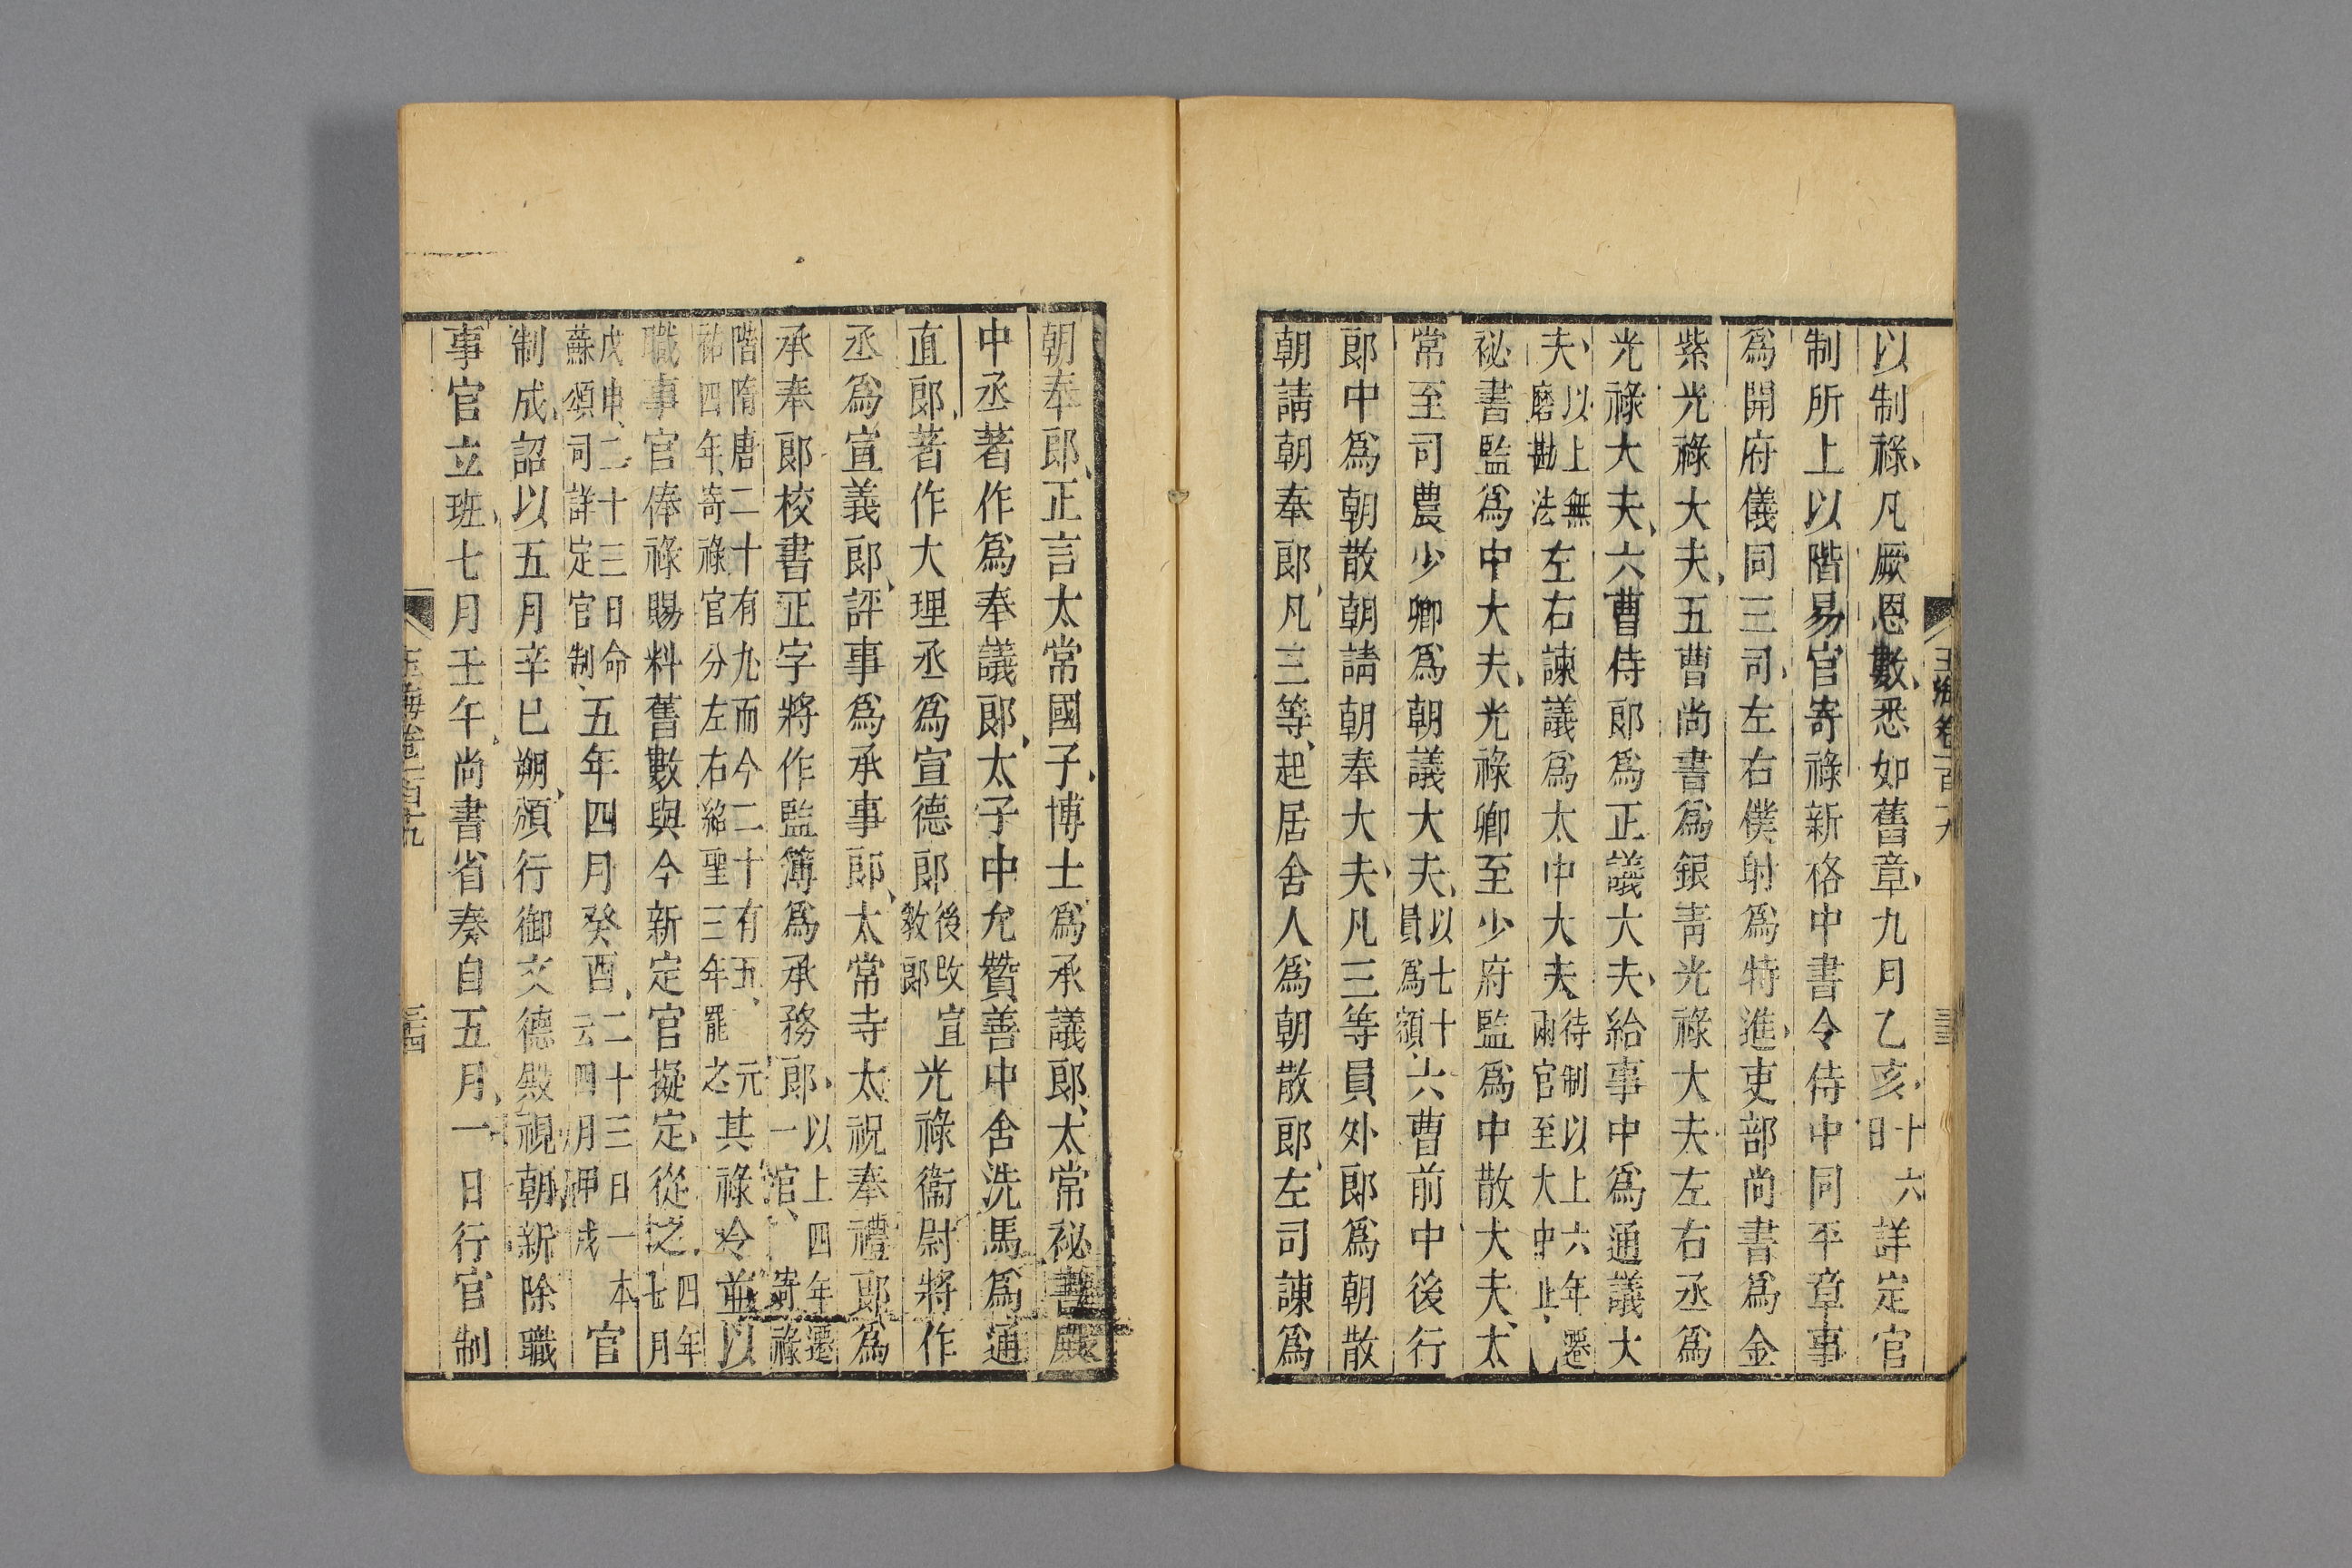 以制祿凡厥恩數悉如舊章九月乙亥十六日詳定官
制所上以階易官寄祿新格中書令侍中同平章事
爲開府儀同三司左右僕射爲特進吏部尚書爲金
紫光祿大夫五曹尚書爲銀青光祿大夫左右丞爲
光祿大夫六曹侍郎爲正議大夫給事中爲通議大
夫以上無磨勘法左右諫議爲太中大夫待制以上六年遷兩官至大中止
祕書監爲中大夫光祿卿至少府監爲中散大夫太
常至司農少卿爲朝議大夫以七十員爲額六曹前中後行
郎中爲朝散朝請朝奉大夫凡三等員外郎爲朝散
朝請朝奉郎凡三等起居舍人爲朝散郎左司諫爲
朝奉郎正言太常國子博士爲承議郎太常祕書殿
中丞著作爲奉議郎太子中允贊善中舍洗馬爲通
直郎著作大理丞爲宣德郎後改宣敎郎光祿衞尉將作
丞爲宣義郎評事爲承事郎太常寺太祝奉禮郎爲
承奉郎校書正字將作監簿爲承務郎以上四年遷一官寄祿
階隋唐二十有九而今二十有五元祐四年寄祿官分左右紹聖三年罷之其祿令並以
職事官俸祿賜料舊數與今新定官擬定從之四年七月
戊申二十三日命蘇頌同詳定官制五年四月癸酉二十三日一本云四月甲戌官
制成詔以五月辛巳朔頒行御文德殿視朝新除職
事官立班七月壬午尚書省奏自五月一日行官制
玉海卷一百十九